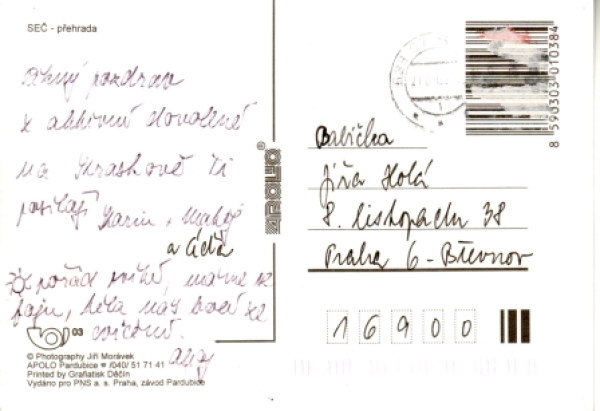 SEČ - přehrada
pozdrav
z aktivní dovolené
na Ti
posílají Karin + Matěj
a Áďa
pořád svítí, máme se
fajn, těla nás bolí ze
cvičení.
Ahoj
03
© Photography Jiří Morávek
APOLO Pardubice ☎ /040/ 51 71 41
Printed by Grafiatisk Děčín
Vydáno pro PNS a. s. Praha, závod Pardubice
APOLO ®
8 590303 010384
Babička
Jiřa Holá
8. listopadu 38
Praha 6 - Břevnov
16900